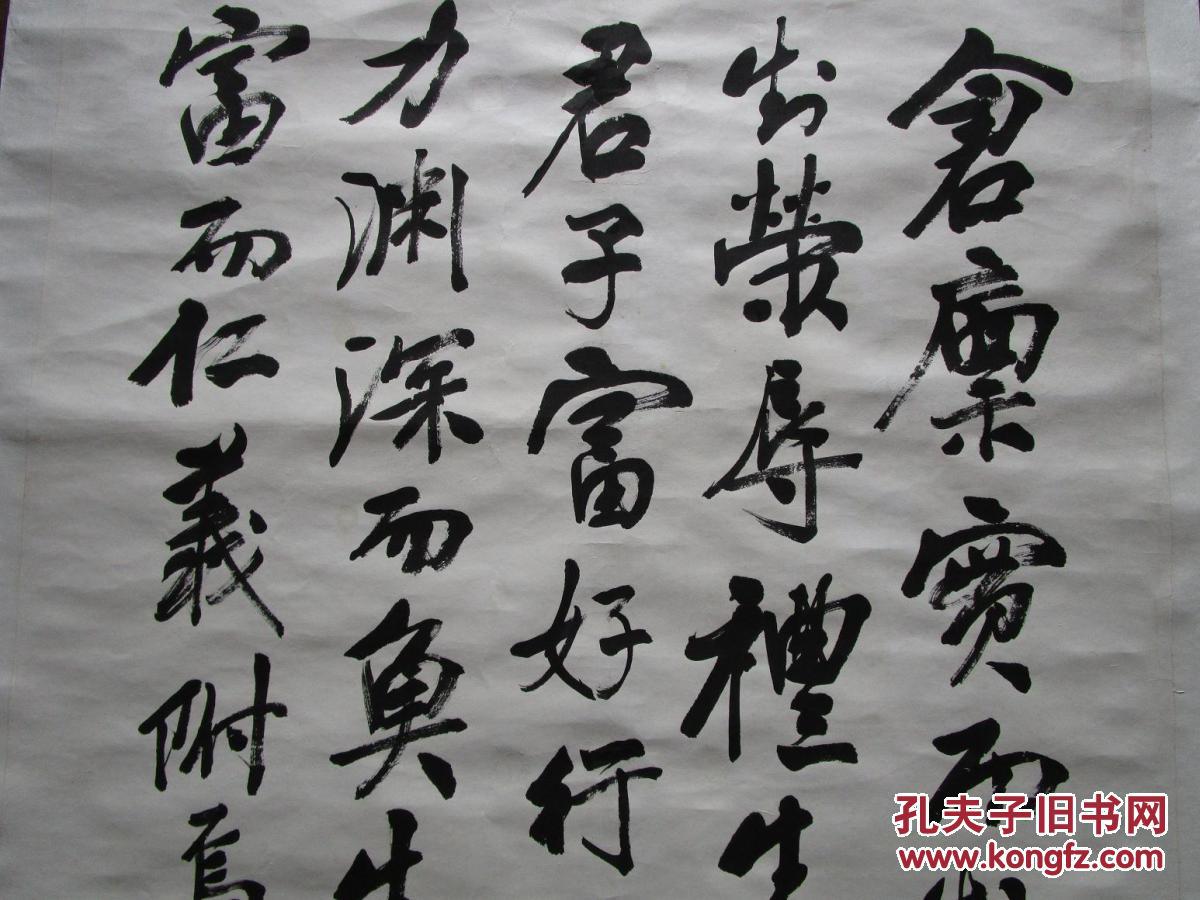 倉廩實而
榮辱禮生
君子富好行
力淵深而魚生
富而仁義附焉
孔夫子旧书网
www.kongfz.com